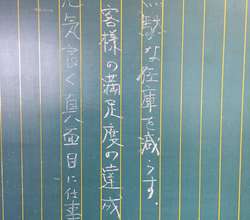 無駄な在庫を減らす.
客様の満足度の達成
元気良く真面目に仕事